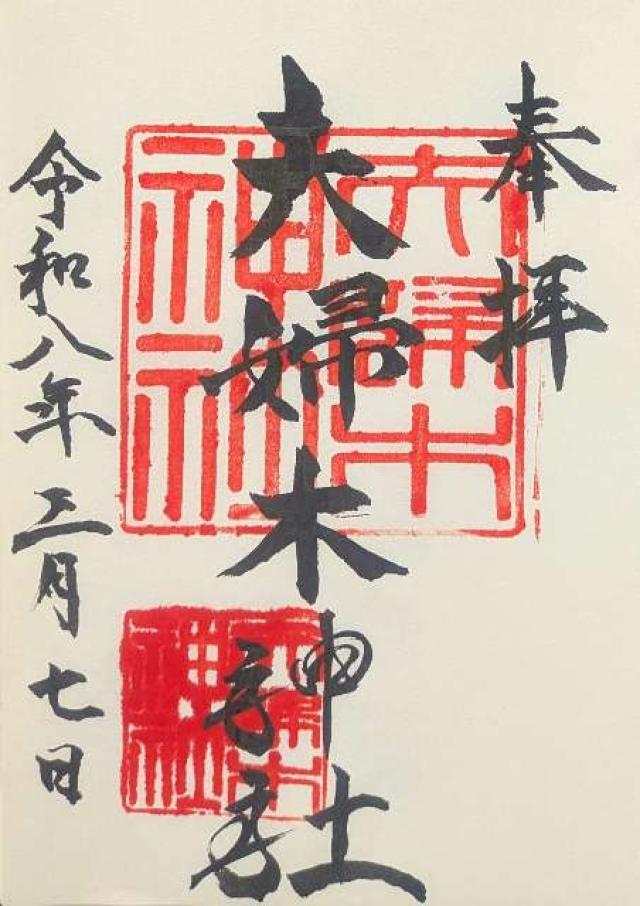 奉拝
夫婦木神社
令和八年三月七日
夫婦木
神社